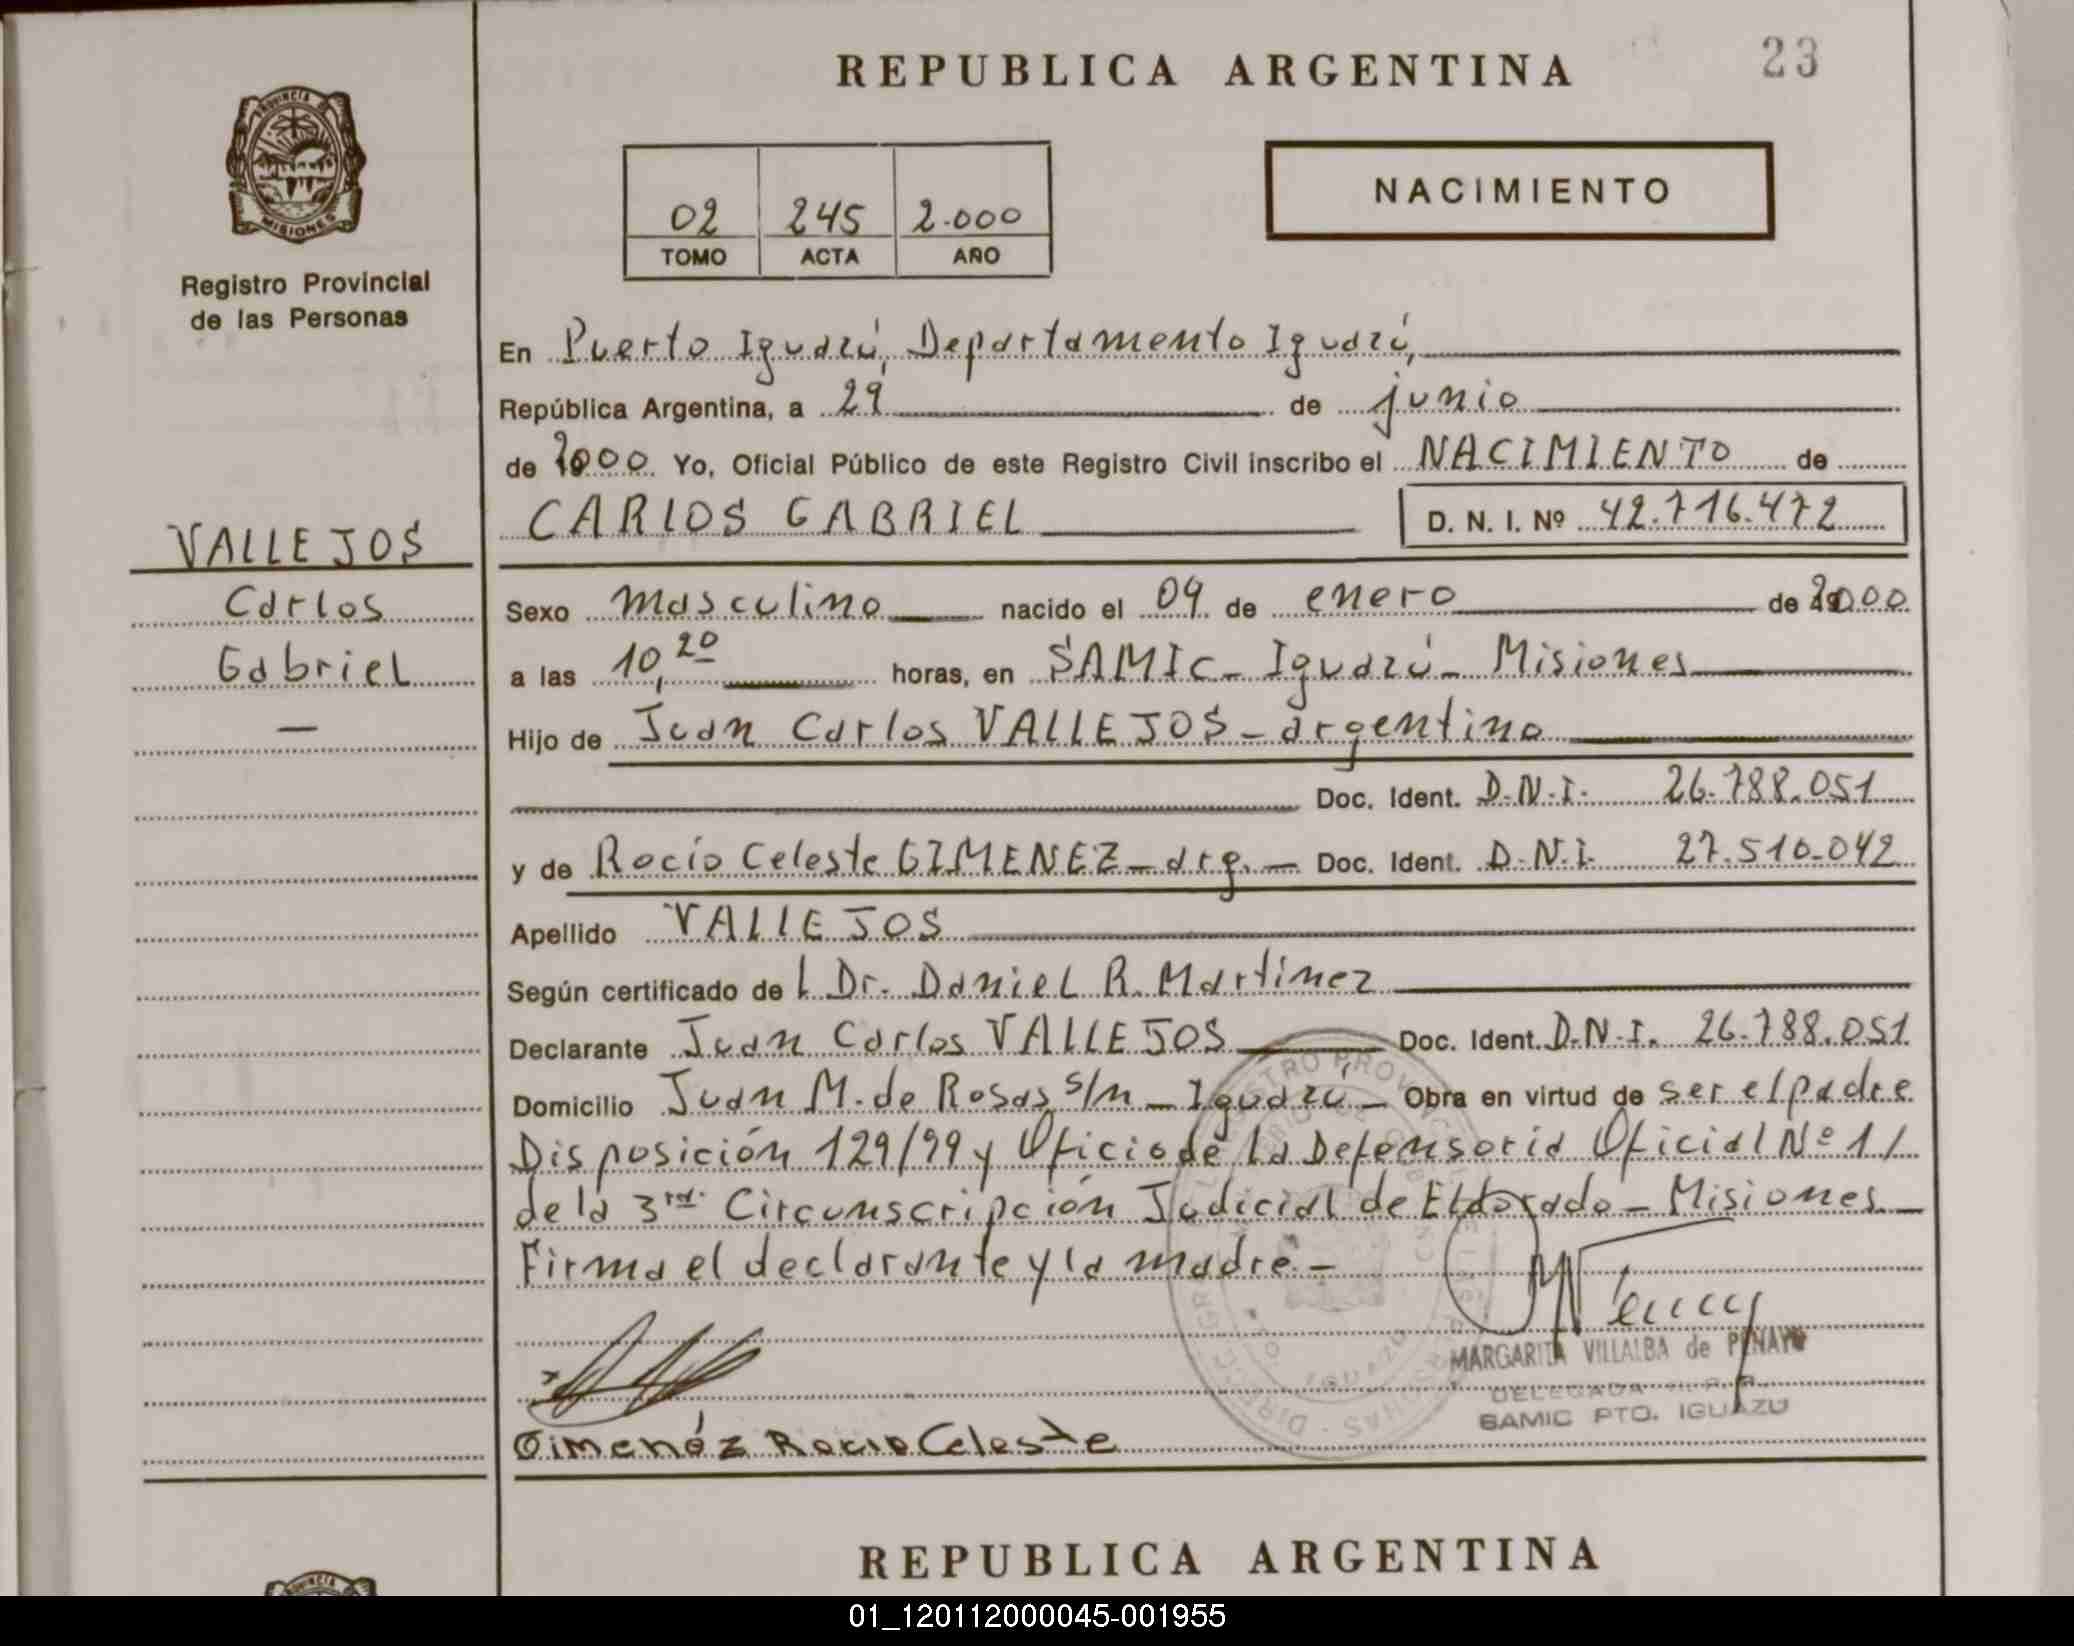 REPUBLICA ARGENTINA
23
PROVINCIA DE
MISIONES
Registro Provincial
de las Personas
02 245 2.000
TOMO ACTA AÑO
NACIMIENTO
En Puerto Iguazú, Departamento Iguazú,
República Argentina, a 29 de junio
de 2000 Yo, Oficial Público de este Registro Civil inscribo el NACIMIENTO de
CARLOS GABRIEL D. N. I. Nº 42.716.472
VALLEJOS
Carlos
Gabriel
—
Sexo masculino nacido el 09 de enero de 2000
a las 10,20 horas, en SAMIC - Iguazú - Misiones
Hijo de Juan Carlos VALLEJOS - argentino
Doc. Ident. D.N.I. 26.788.051
y de Rocío Celeste GIMENEZ - arg. - Doc. Ident. D.N.I. 27.510.042
Apellido VALLEJOS
Según certificado de l Dr. Daniel R. Martínez
Declarante Juan Carlos VALLEJOS Doc. Ident. D.N.I. 26.788.051
Domicilio Juan M. de Rosas s/n - Iguazú - Obra en virtud de ser el padre
Disposición 129/99 y Oficio de la Defensoría Oficial Nº 1/
de la 3ra. Circunscripción Judicial de Eldorado - Misiones -
Firma el declarante y la madre. -
MARGARITA VILLALBA de PENAYO
DELEGADA
SAMIC PTO. IGUAZU
Gimenéz Rocio Celeste
REPUBLICA ARGENTINA
01_120112000045-001955